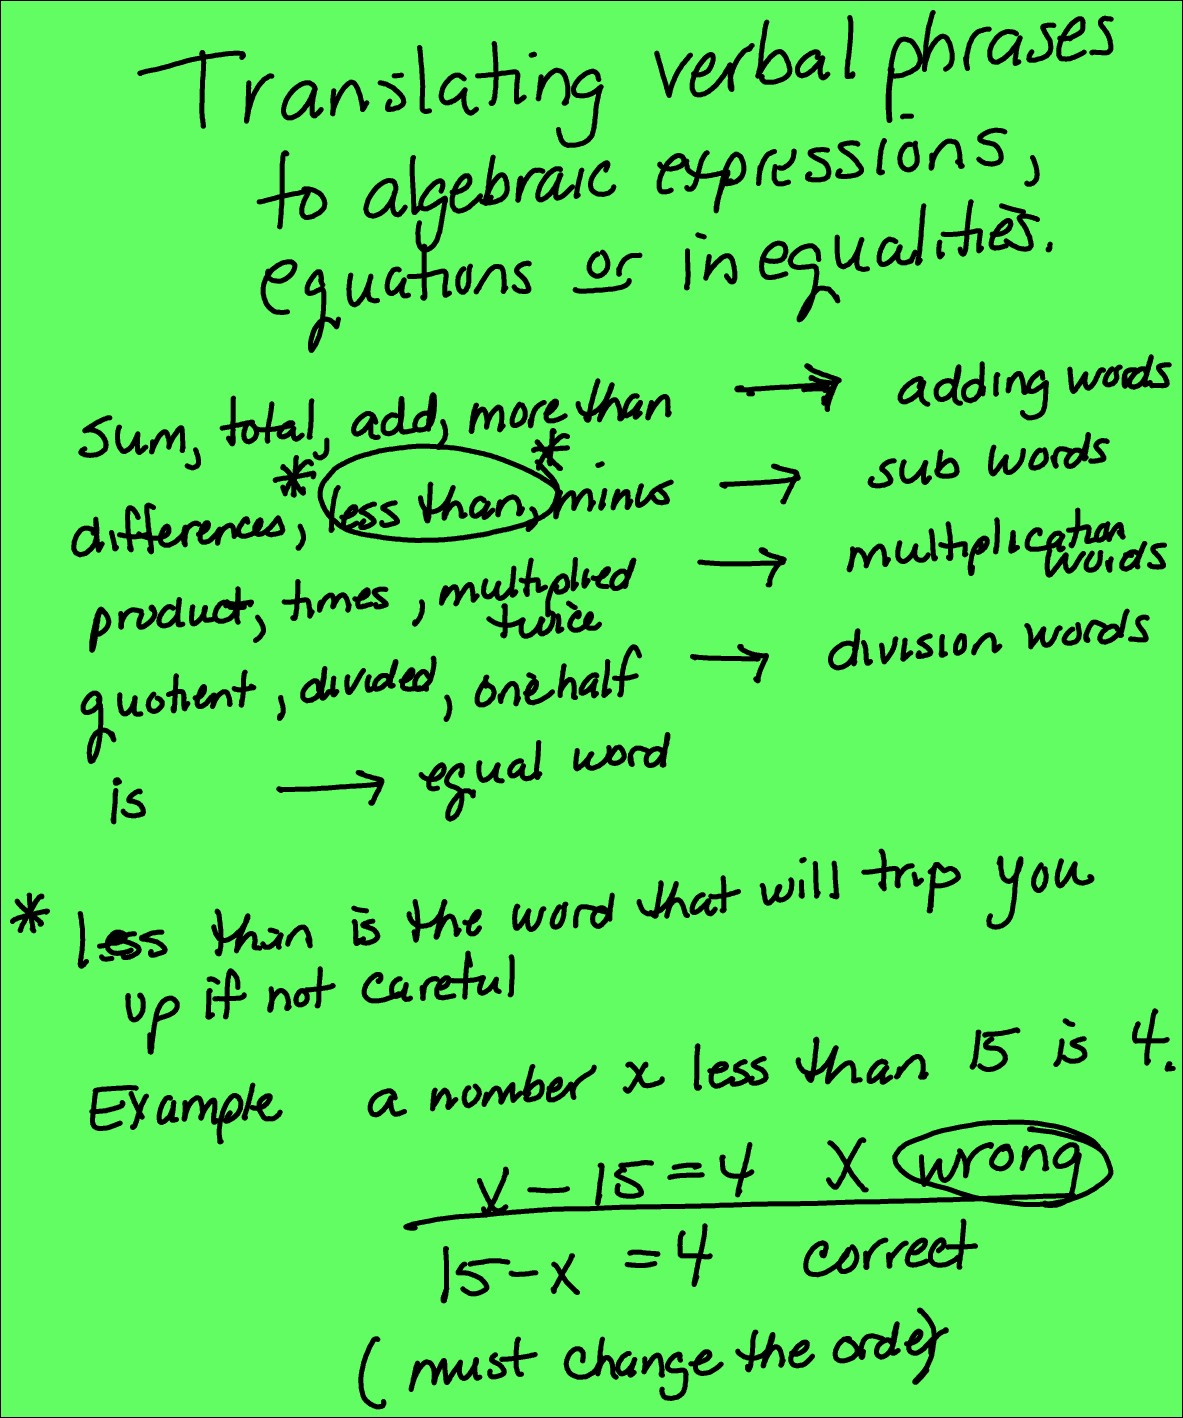 Translating verbal phrases
to algebraic expressions,
equations or inequalities.
sum, total, add, more than → adding words
differences, * less than, * minus → sub words
product, times, multiplied twice → multiplication words
quotient, divided, one half → division words
is → equal word
* less than is the word that will trip you
up if not careful
Example a number x less than 15 is 4.
x - 15 = 4 X wrong
15 - x = 4 correct
(must change the order)